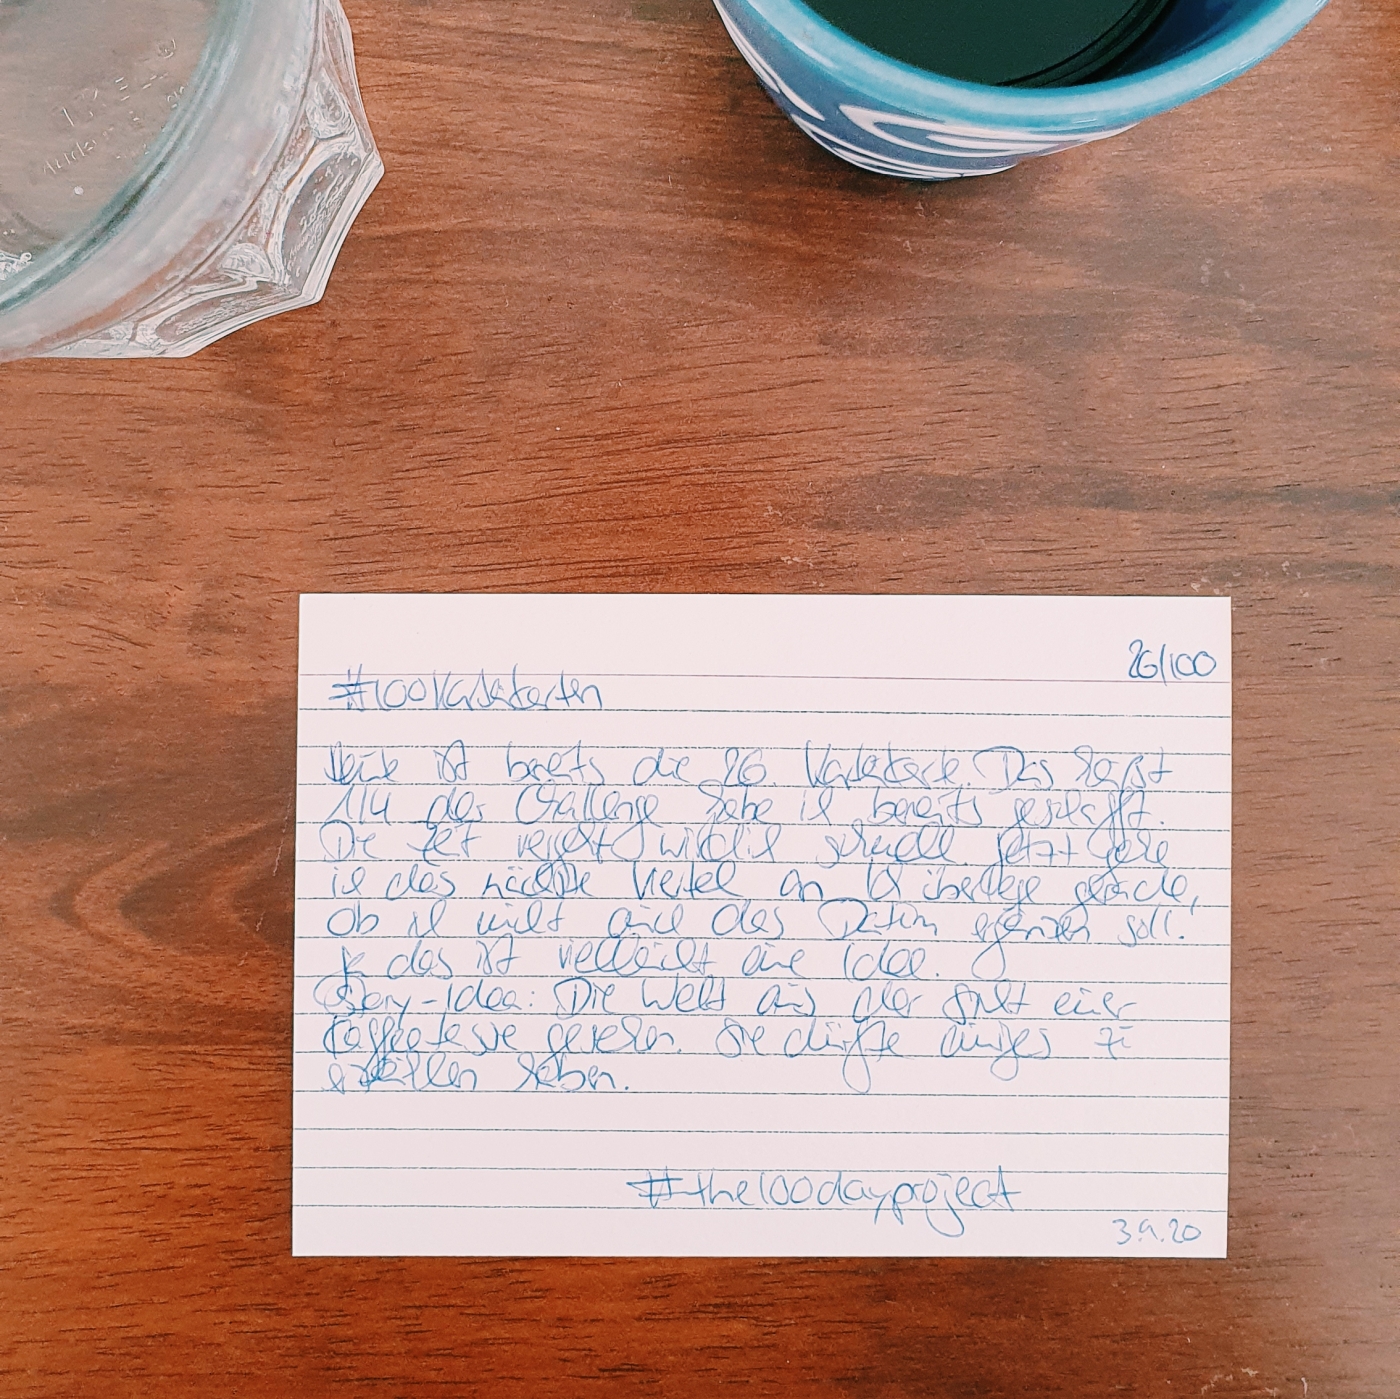 26/100
#100Karteikarten
Heute ist bereits die 26. Karteikarte. Das heißt
1/4 der Challenge habe ich bereits geschafft.
Die Zeit vergeht wirklich schnell. Jetzt gehe
ich das nächste Viertel an. Ich überlege gerade,
ob ich nicht auch das Datum ergänzen soll.
Ja das ist vielleicht eine Idee.
Story-Idee: Die Welt aus der Sicht einer
Kaffeetasse gesehen. Sie dürfte einiges zu
erzählen haben.
#the100dayproject
3.9.20